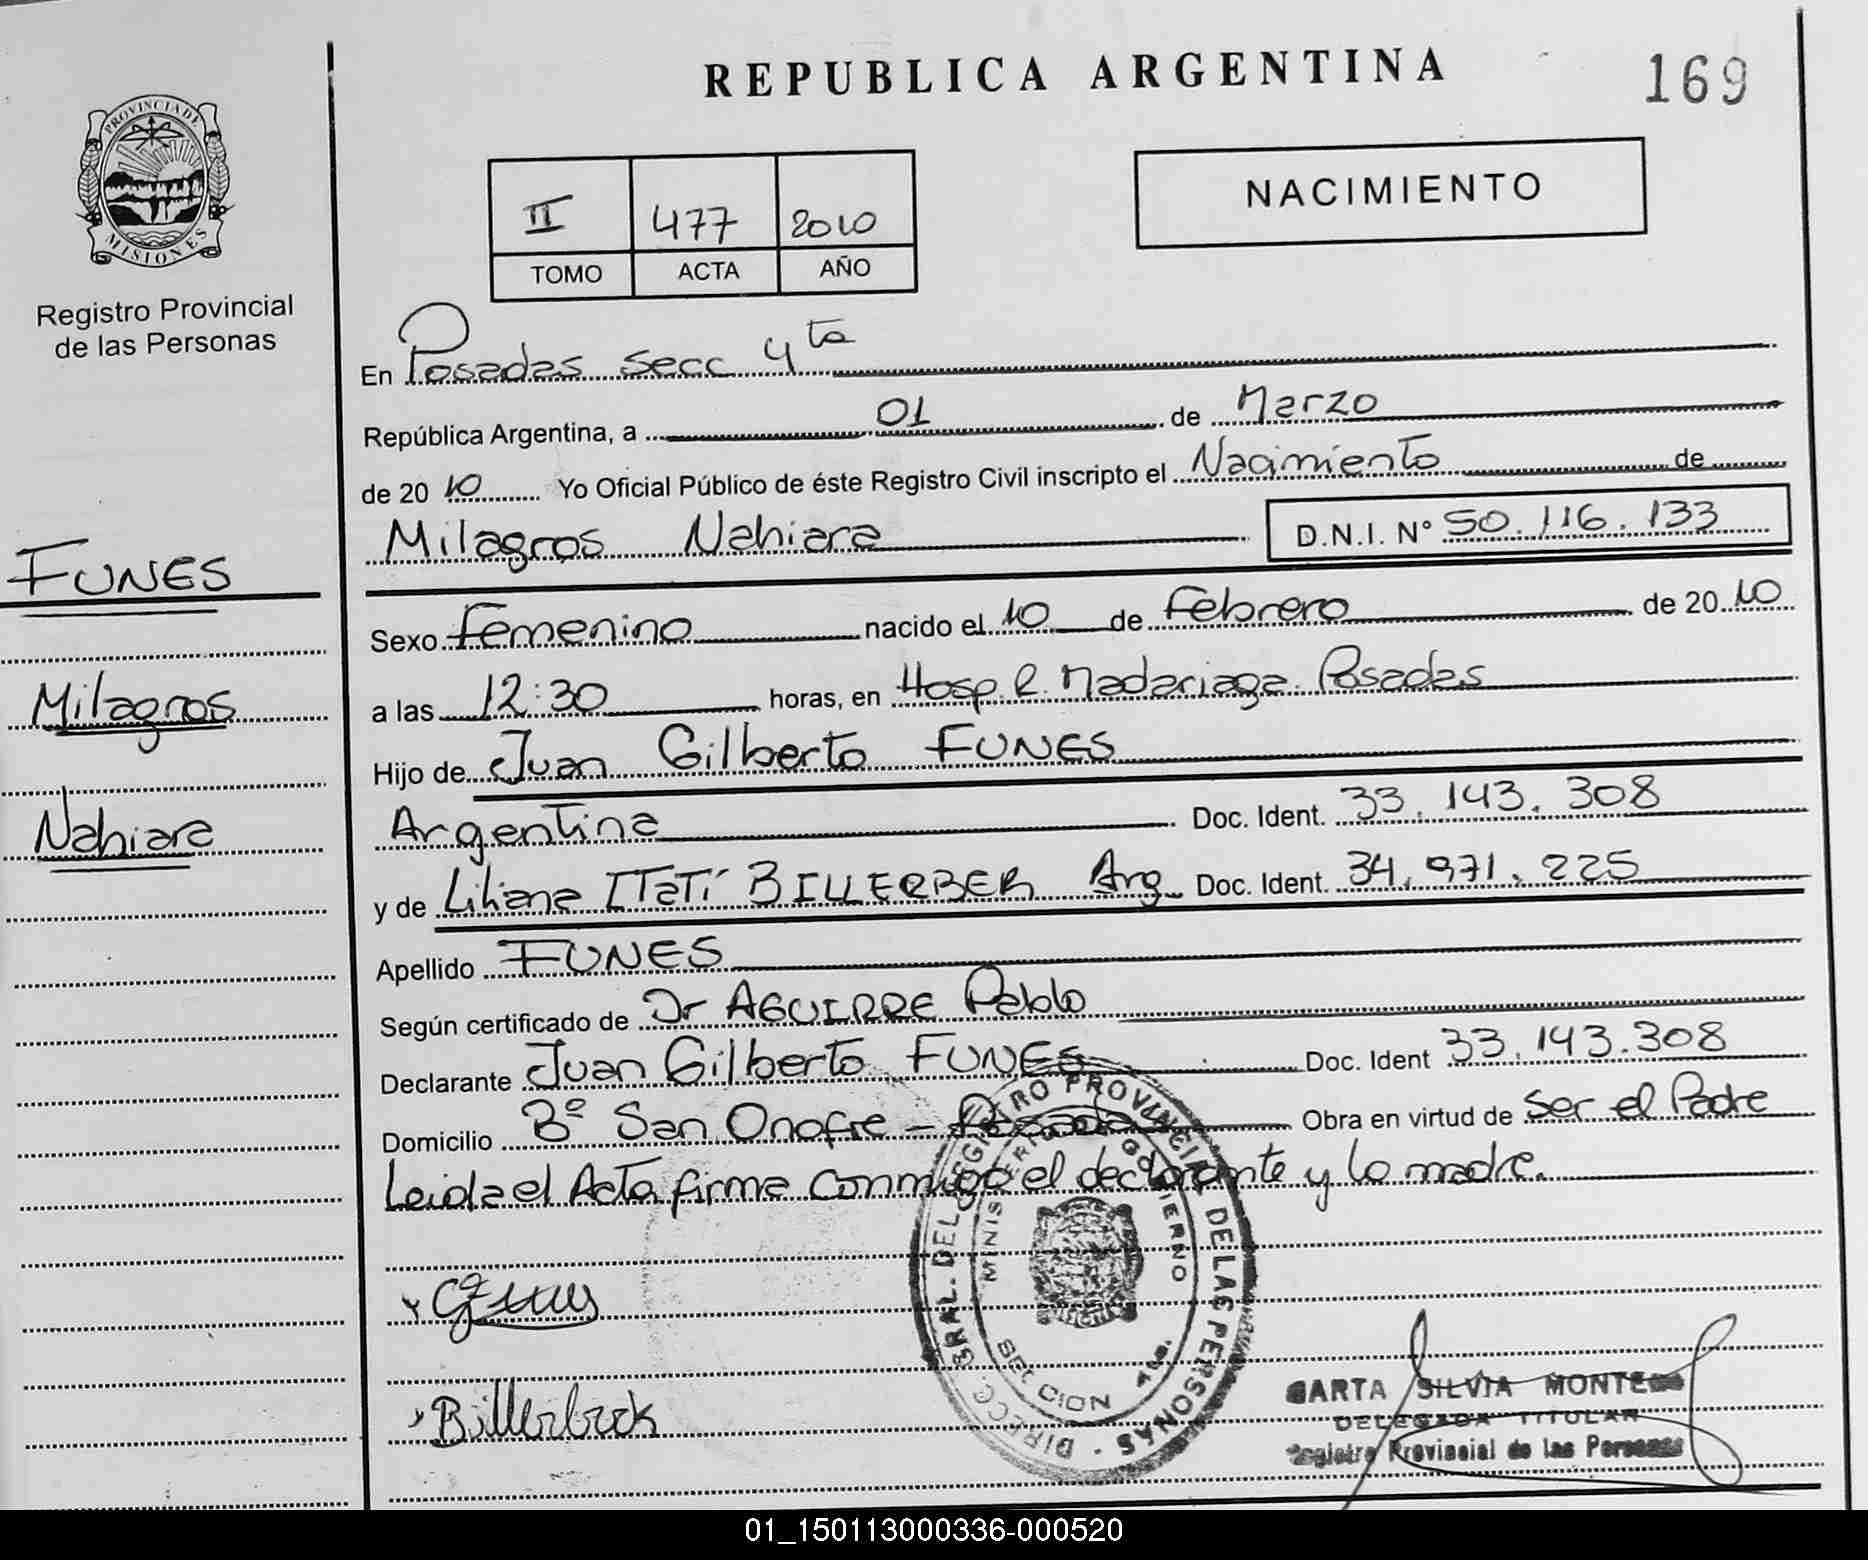 REPUBLICA ARGENTINA
169
PROVINCIA DE
MISIONES
Registro Provincial
de las Personas
NACIMIENTO
II 477 2010
TOMO ACTA AÑO
En Posadas secc 4ta
República Argentina, a 01 de Marzo
de 2010 Yo Oficial Público de éste Registro Civil inscripto el Nacimiento de
Milagros Nahiara D.N.I. Nº 50.116.133
FUNES
Milagros
Nahiara
Sexo Femenino nacido el 10 de Febrero de 2010
a las 12:30 horas, en Hosp. R. Madariaga. Posadas
Hijo de Juan Gilberto FUNES
Argentina Doc. Ident. 33.143.308
y de Liliana ITatí Arg Doc. Ident. 34.971.225
Apellido FUNES
Según certificado de Dr AGUIRRE Pablo
Declarante Juan Gilberto FUNES Doc. Ident 33.143.308
Domicilio Bº San Onofre - Posadas Obra en virtud de ser el Padre
Leida el Acta firma conmigo el declarante y la madre.
DIRECC. GRAL. DEL REGISTRO PROVINCIAL DE LAS PERSONAS
MINISTERIO DE GOBIERNO
SECCION 4ta.
Billerbeck
SILVIA
DELEGADA TITULAR
Registro Provincial de las Personas
01_150113000336-000520